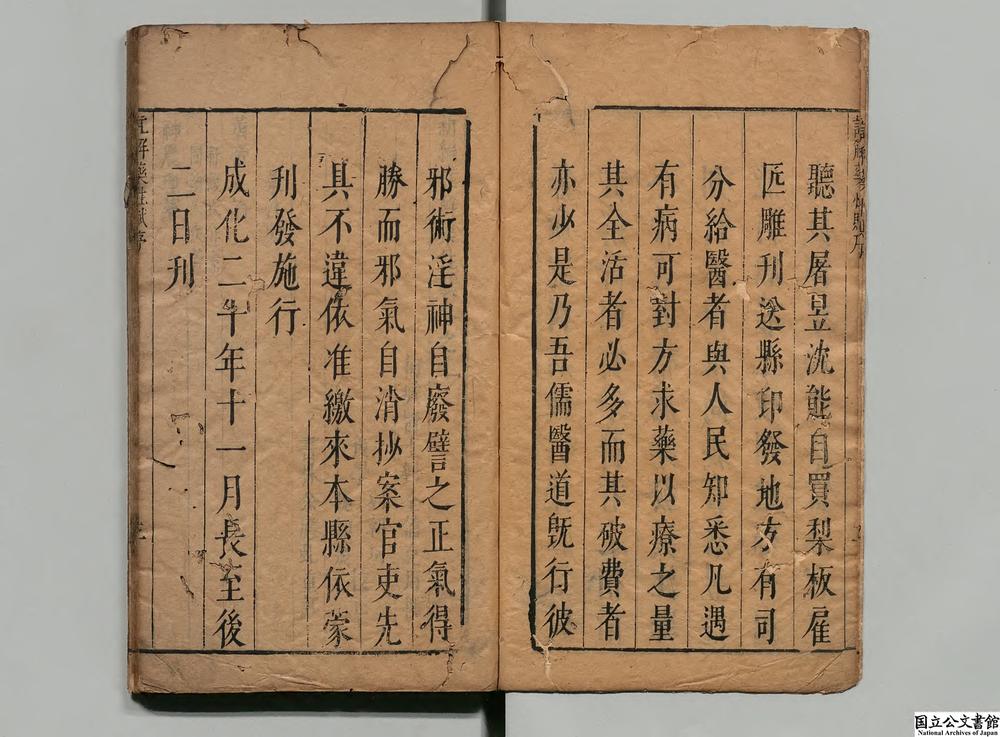 聽其屠昱沈熊自買梨板雇
匠雕刊送縣印發地方有司
分給醫者與人民知悉凡遇
有病可對方求藥以療之量
其全活者必多而其破費者
亦少是乃吾儒醫道旣行彼
邪術淫神自廢譬之正氣得
勝而邪氣自消抄案官吏先
具不違依准繳來本縣依蒙
刊發施行
成化二十年十一月長至後
二日刊
註解藥性賦序
国立公文書館
National Archives of Japan